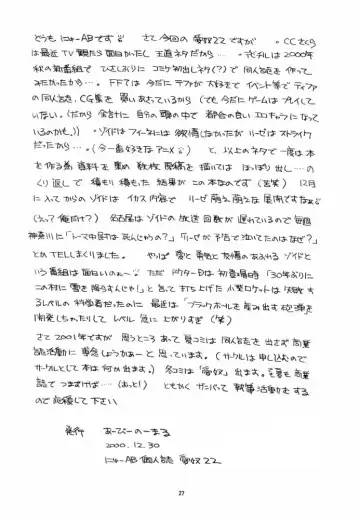 どうも にゅーABです さて今回の 愛奴22ですが 。CCさくら
は最近TV観たら面白かったし 王道ネタだから… ・デビチルは2000年
秋の新番組で ひさしぶりに コミケ初出しネタ(？)で 同人誌を作って
みたかったから…。 FF7は 今だにティファが大好きで イベント等でティファ
の同人誌、CG集を 買いあさっているから(でも今だにゲームはプレイして
いない。(だから 余計に 自分の頭の中で 都合の良い エロキャラになって
いるのかも。)) ・ゾイドは フィーネには 欲情しなかったが リーゼはストライク
だったから…。(今一番好きなアニメ) と、以上のネタで一度は本
を作る為 資料を集め 数枚 原稿を 描いては ほっぽり出し…の
くり返しで 積もり 積もった 結果が この本なのです(苦笑) 12月
に入ってからのゾイドは イカス内容で リーゼ萌え萌えな展開ですなぁ
(えっ?俺だけ?) 名古屋は ゾイドの放送回数が遅れているので毎週
神奈川に「トーマ中尉は死んじゃうの?」「リーゼが予告で泣いてたのはなぜ?」
とかTELしまくりました。 やっぱ 愛と 勇気と 友情のあふれる ゾイドと
いう番組は 面白いのぉ〜 ただ ドクターDは 初登場時「30年ぶりに
この村に 雪を 降らすんじゃ!」と言って 打ち上げた 小型ロケットは 失敗す
るレベルの科学者だったのに 最近は「ブラックホールを 産み出す 砲弾を
開発しちゃったりして レベル 急に 上がりすぎ(笑)
さて 2001年ですが 思うところ あって 夏コミは 同人誌を 出さず 商業
誌活動に 専念しようかなぁーと 思っています。(サークルは申し込むので
サークルとして 本は 何か出ます。) 冬コミは「愛奴」出ます。 商業
誌で つまずけば…(あっと!) ともかく ガンバって 執筆活動をする
ので 応援して 下さい
発行 あーびーのーまる
2000.12.30
にゅーAB個人誌 愛奴22
27